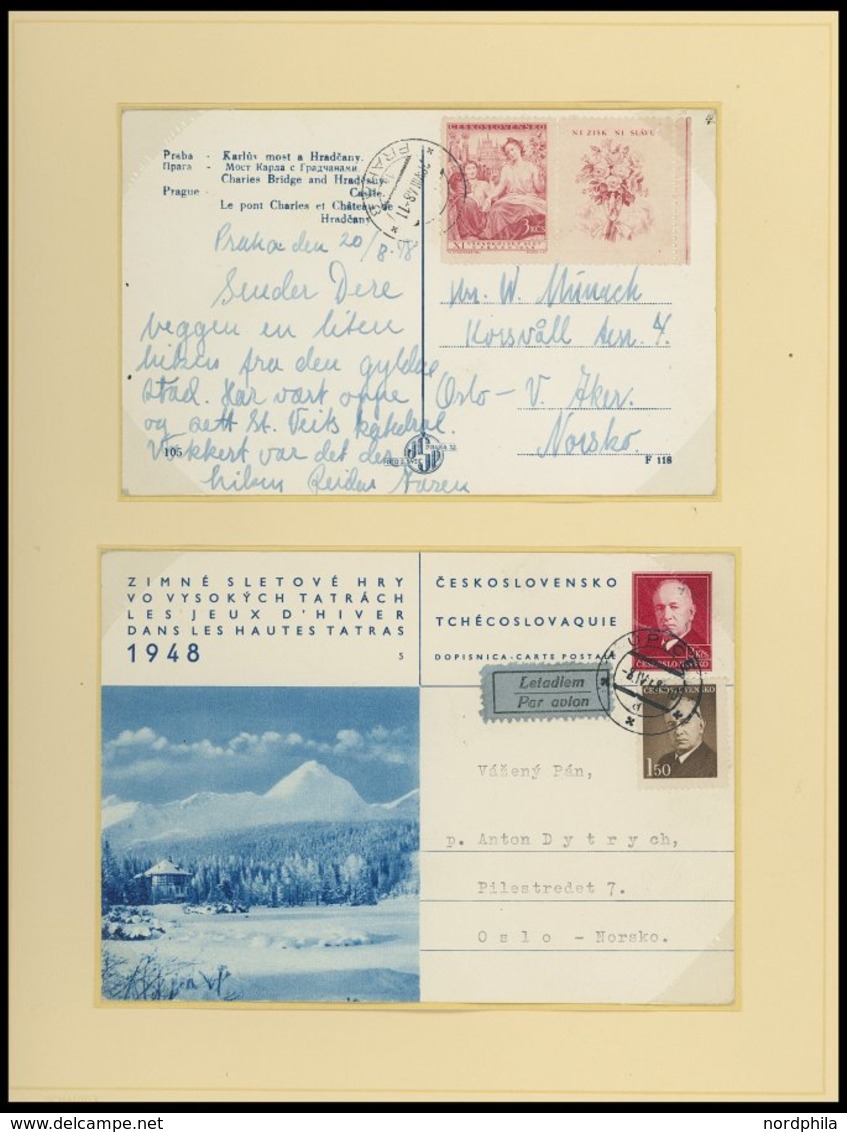 Praha - Karlův most a Hradčany.
Прага - Мост Карла с Градчанами.
Charles Bridge and Hradčany
Prague - Castle.
Le pont Charles et Château de
Hradčany
ČESKOSLOVENSKO
3 KČS
NI ZISK NI SLÁVU
PRAHA
Praha den 20/8.48
Sender Dere
veggen en liten
hilsen fra den gyldne
stad. Har vært oppe
og sett St. Veits katedral.
Vakkert var det der
hilsen Reidar
W. Münach
Oslo - V. Aker.
Norsko.
105
F 118
ZIMNÉ SLETOVÉ HRY
VO VYSOKÝCH TATRÁCH
LES JEUX D'HIVER
DANS LES HAUTES TATRAS
1948
5
ČESKOSLOVENSKO
TCHÉCOSLOVAQUIE
DOPISNICA - CARTE POSTALE
2 Kčs
ČESKOSLOVENSKO
Letadlem
Par avion
ČESKOSLOVENSKO
1 50
Vážený Pán,
p. Anton Dytrych,
Pilestredet 7.
Oslo - Norsko.
nordphila.com